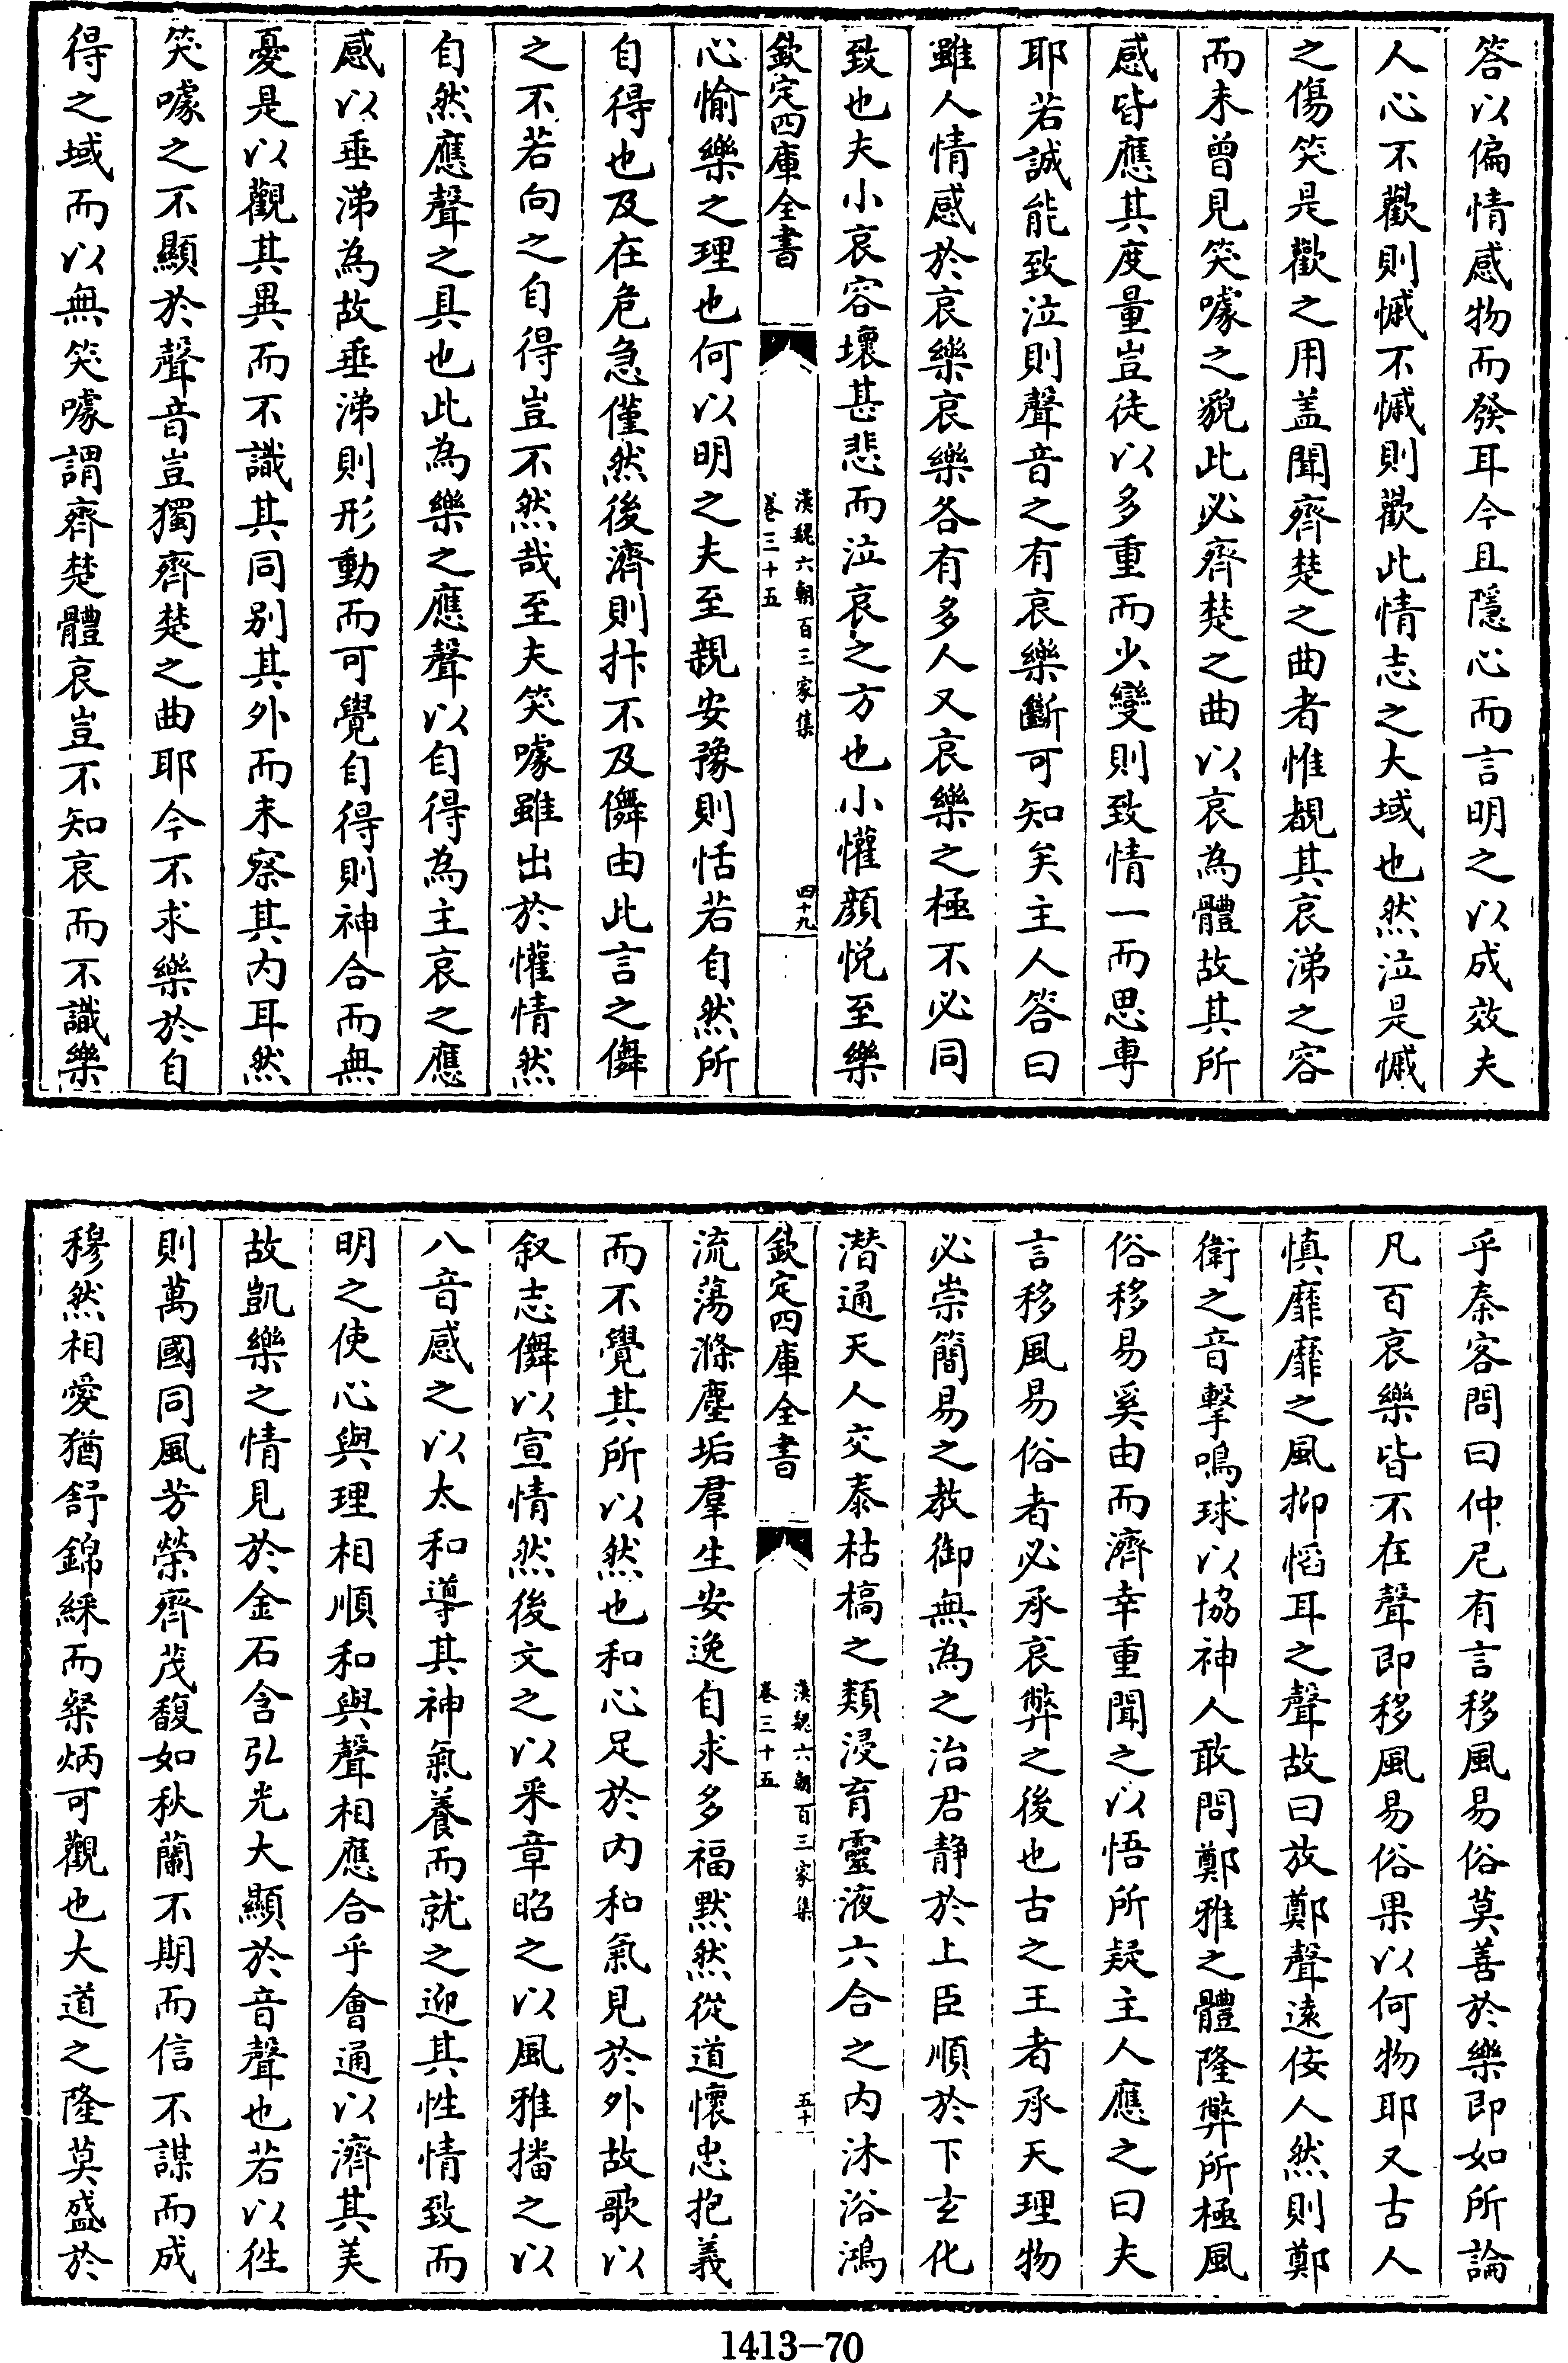 答以偏情感物而發耳今且隱心而言明之以成效夫
人心不歡則慽不慽則歡此情志之大域也然泣是慽
之傷笑是歡之用盖聞齊楚之曲者惟覩其哀涕之容
而未曾見笑噱之貌此必齊楚之曲以哀為體故其所
感皆應其度量豈徒以多重而少變則致情一而思専
耶若誠能致泣則聲音之有哀樂斷可知矣主人答曰
雖人情感於哀樂哀樂各有多人又哀樂之極不必同
致也夫小哀容壞甚悲而泣哀之方也小懽顔悅至樂
欽定四庫全書
漢魏六朝百三家集
卷三十五
四十九
心愉樂之理也何以明之夫至親安豫則恬若自然所
自得也及在危急僅然後濟則抃不及儛由此言之儛
之不若向之自得豈不然哉至夫笑噱雖出於懽情然
自然應聲之具也此為樂之應聲以自得為主哀之應
感以垂涕為故垂涕則形動而可覺自得則神合而無
憂是以觀其異而不識其同别其外而未察其内耳然
笑噱之不顯於聲音豈獨齊楚之曲耶今不求樂於自
得之域而以無笑噱謂齊楚體哀豈不知哀而不識樂
乎秦客問曰仲尼有言移風易俗莫善於樂即如所論
凡百哀樂皆不在聲即移風易俗果以何物耶又古人
慎靡靡之風抑慆耳之聲故曰放鄭聲遠佞人然則鄭
衛之音擊鳴球以協神人敢問鄭雅之體隆弊所極風
俗移易奚由而濟幸重聞之以悟所疑主人應之曰夫
言移風易俗者必承哀弊之後也古之王者承天理物
必崇簡易之教御無為之治君静於上臣順於下玄化
潜通天人交泰枯槁之類浸育靈液六合之内沐浴鴻
欽定四庫全書
漢魏六朝百三家集
卷三十五
五十
流蕩滌塵垢羣生安逸自求多福默然從道懷忠抱義
而不覺其所以然也和心足於内和氣見於外故歌以
叙志儛以宣情然後文之以采章昭之以風雅播之以
八音感之以太和導其神氣養而就之迎其性情致而
明之使心與理相順和與聲相應合乎會通以濟其美
故凱樂之情見於金石含弘光大顯於音聲也若以徃
則萬國同風芳榮齊茂馥如秋蘭不期而信不謀而成
穆然相愛猶舒錦綵而粲炳可觀也大道之隆莫盛於
1413-70